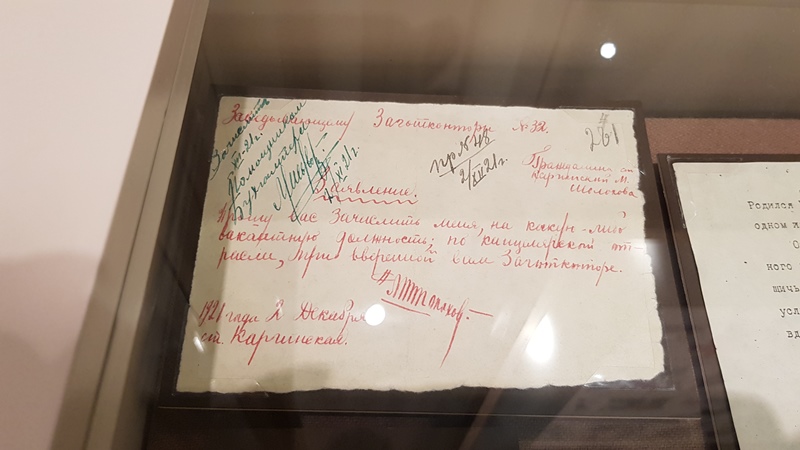 Заведывающему Заготконторы № 32.
Зачислить
помощником
бухгалтера
2/XII 21г.
пр № 48
2/XII 21г.
261
Гражданина ст.
Каргинской М.
Шолохова
Заявление.
Прошу вас зачислить меня, на какую-либо
вакантную должность; по канцелярской от-
расли, при вверенной вам Заготконторе.
М Шолохов.
1921 года 2 Декабря
ст. Каргинская.
Родился
одном
ного